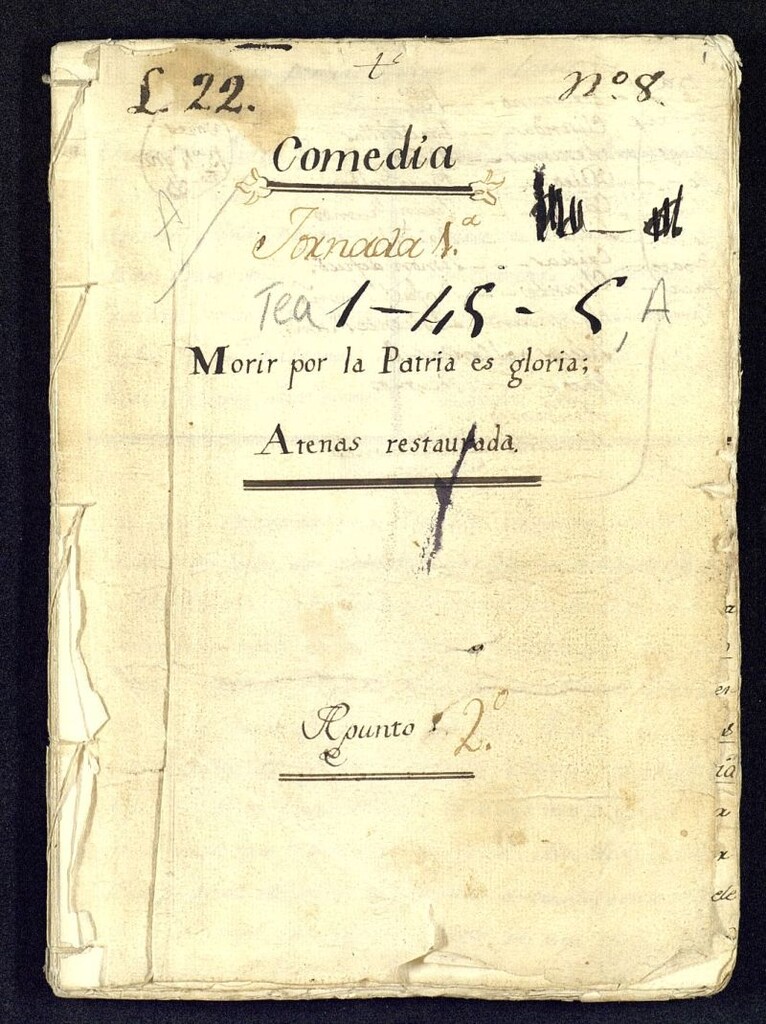 L 22.
nº 8.
Comedia
Jornada 1.ª
A
Tea 1-45-5, A
Morir por la Patria es gloria;
Atenas restaurada.
Apunto 2.º
a
ia
x
x
de